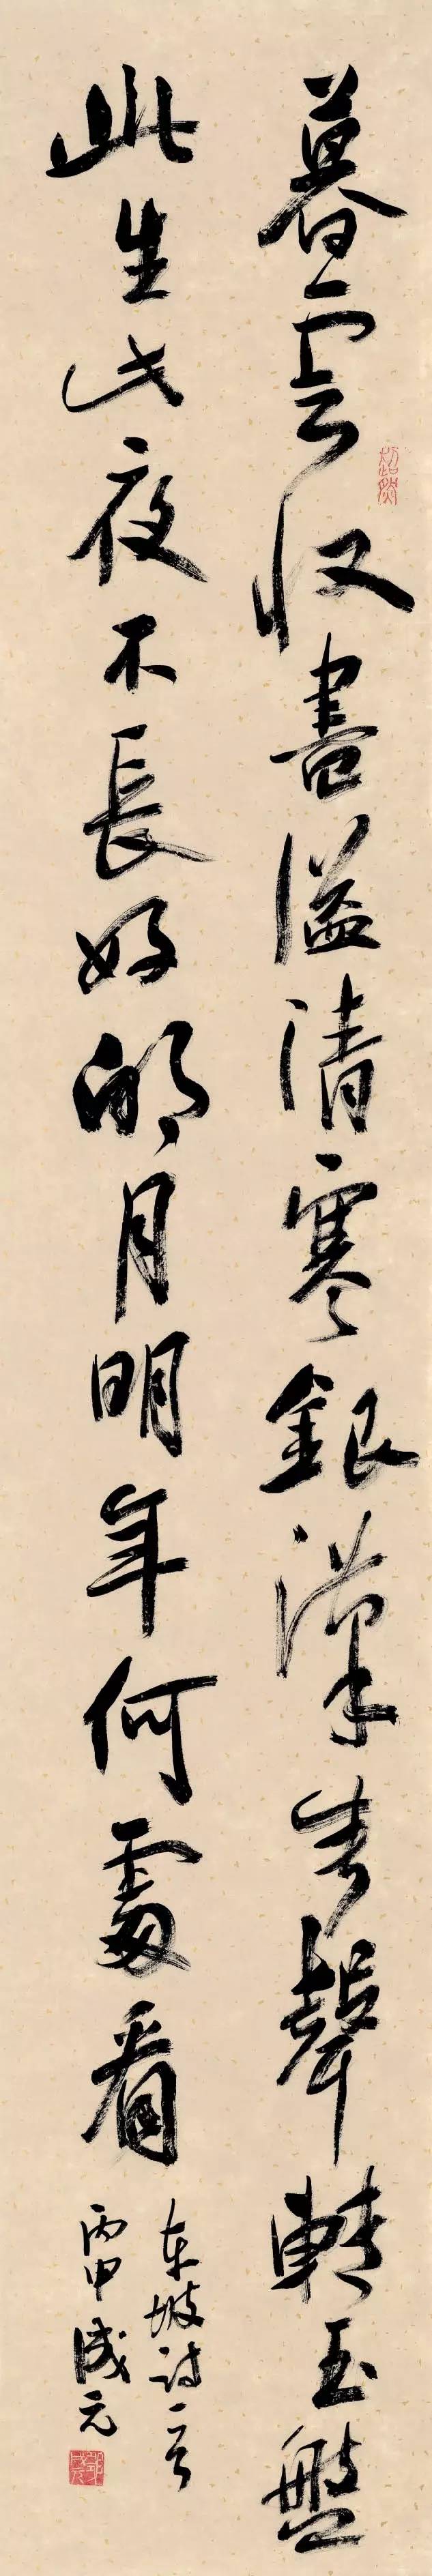 暮雲收盡溢清寒銀漢無聲轉玉盤
此生此夜不長好明月明年何處看
東坡詩一首
丙申成元